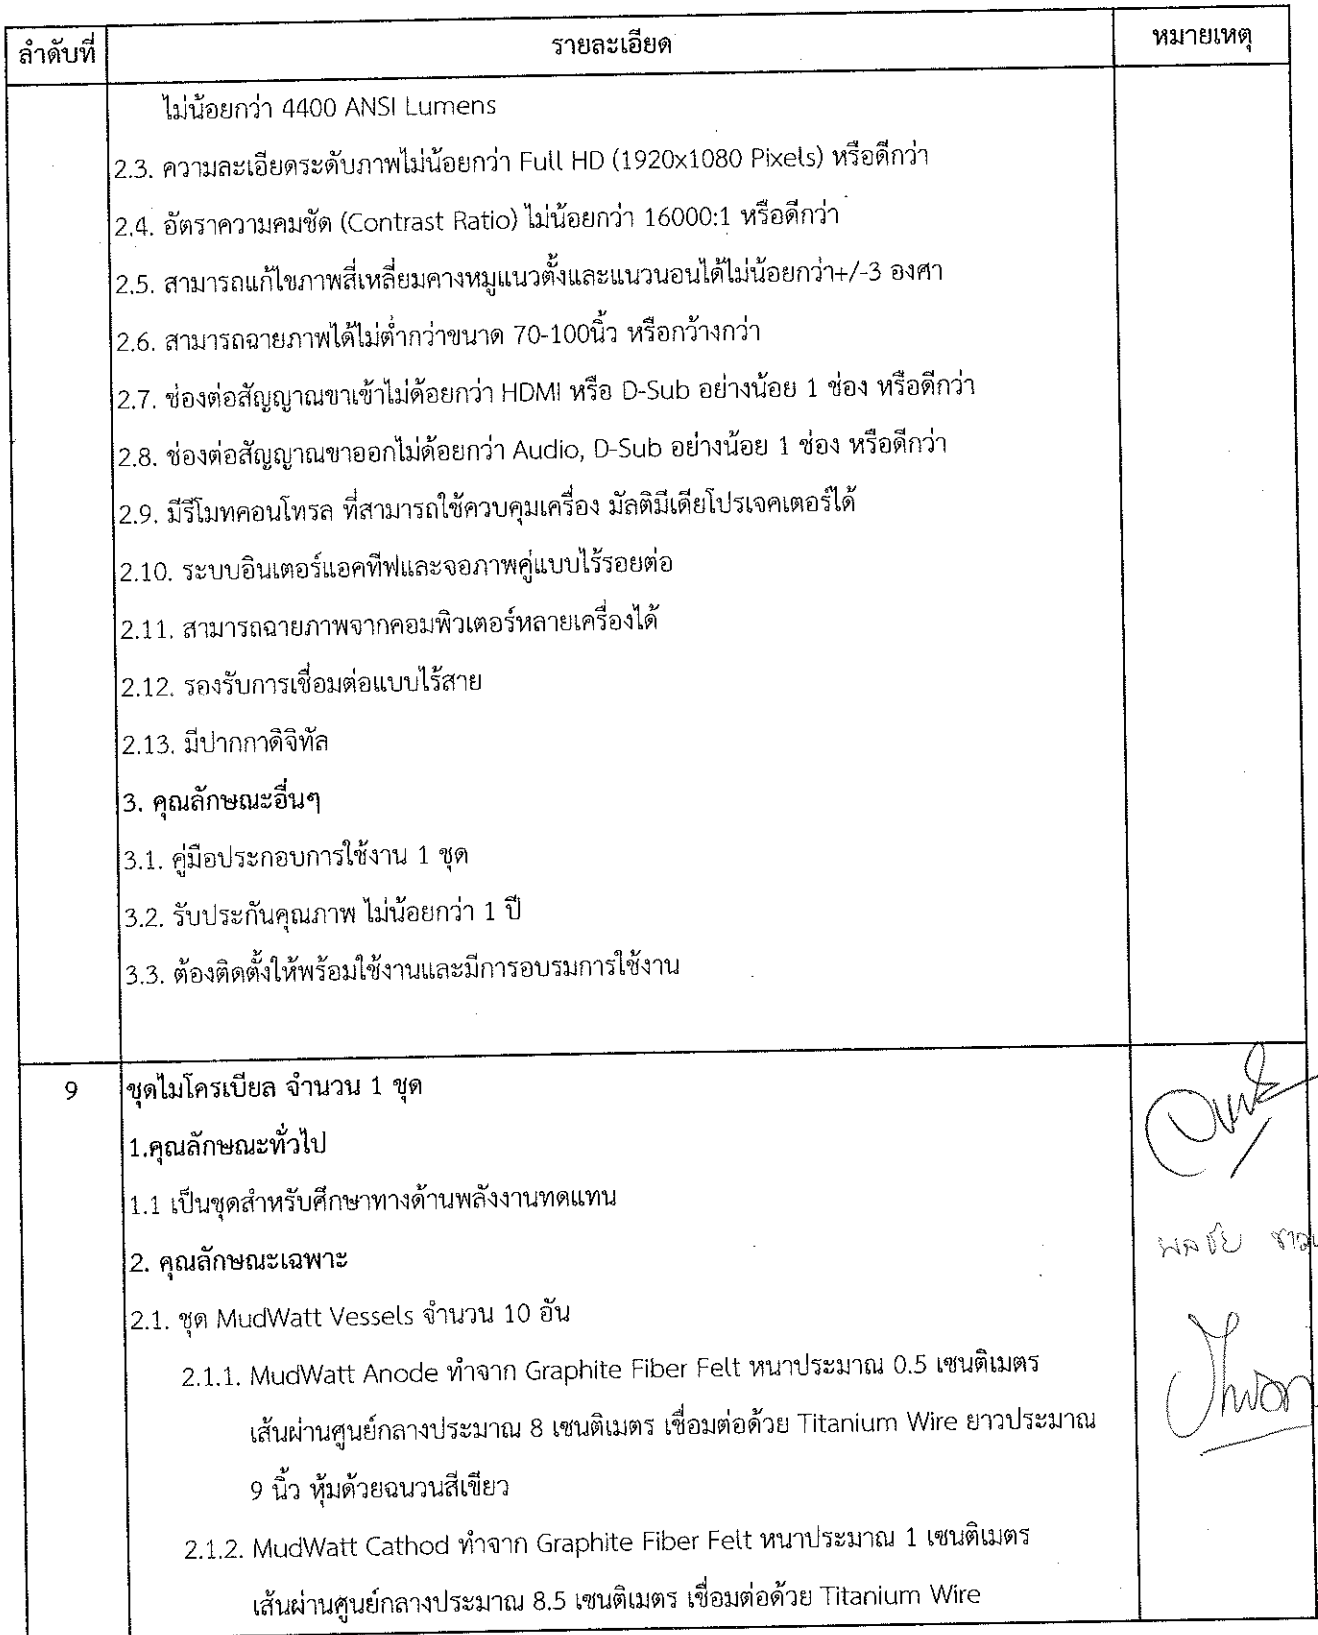 ลำดับที่ รายละเอียด หมายเหตุ
ไม่น้อยกว่า 4400 ANSI Lumens
2.3. ความละเอียดระดับภาพไม่น้อยกว่า Full HD (1920x1080 Pixels) หรือดีกว่า
2.4. อัตราความคมชัด (Contrast Ratio) ไม่น้อยกว่า 16000:1 หรือดีกว่า
2.5. สามารถแก้ไขภาพสี่เหลี่ยมคางหมูแนวตั้งและแนวนอนได้ไม่น้อยกว่า+/-3 องศา
2.6. สามารถฉายภาพได้ไม่ต่ำกว่าขนาด 70-100นิ้ว หรือกว้างกว่า
2.7. ช่องต่อสัญญาณขาเข้าไม่ด้อยกว่า HDMI หรือ D-Sub อย่างน้อย 1 ช่อง หรือดีกว่า
2.8. ช่องต่อสัญญาณขาออกไม่ด้อยกว่า Audio, D-Sub อย่างน้อย 1 ช่อง หรือดีกว่า
2.9. มีรีโมทคอนโทรล ที่สามารถใช้ควบคุมเครื่อง มัลติมีเดียโปรเจคเตอร์ได้
2.10. ระบบอินเตอร์แอคทีฟและจอภาพคู่แบบไร้รอยต่อ
2.11. สามารถฉายภาพจากคอมพิวเตอร์หลายเครื่องได้
2.12. รองรับการเชื่อมต่อแบบไร้สาย
2.13. มีปากกาดิจิทัล
3. คุณลักษณะอื่นๆ
3.1. คู่มือประกอบการใช้งาน 1 ชุด
3.2. รับประกันคุณภาพ ไม่น้อยกว่า 1 ปี
3.3. ต้องติดตั้งให้พร้อมใช้งานและมีการอบรมการใช้งาน
9 ชุดไมโครเบียล จำนวน 1 ชุด
1.คุณลักษณะทั่วไป
1.1 เป็นชุดสำหรับศึกษาทางด้านพลังงานทดแทน
2. คุณลักษณะเฉพาะ
2.1. ชุด MudWatt Vessels จำนวน 10 อัน
2.1.1. MudWatt Anode ทำจาก Graphite Fiber Felt หนาประมาณ 0.5 เซนติเมตร
เส้นผ่านศูนย์กลางประมาณ 8 เซนติเมตร เชื่อมต่อด้วย Titanium Wire ยาวประมาณ
9 นิ้ว หุ้มด้วยฉนวนสีเขียว
2.1.2. MudWatt Cathod ทำจาก Graphite Fiber Felt หนาประมาณ 1 เซนติเมตร
เส้นผ่านศูนย์กลางประมาณ 8.5 เซนติเมตร เชื่อมต่อด้วย Titanium Wire